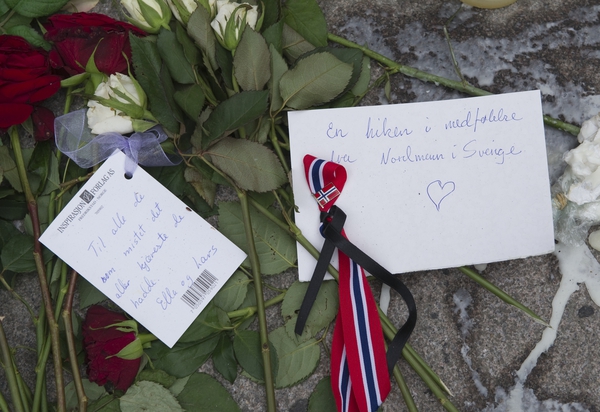 INSPIRASJON FORLAG AS
Til alle de
som mistet det
aller kjæreste de
hadde.
Elle og Lars
En hilsen i medfølelse
fra Nordmenn i Sverige